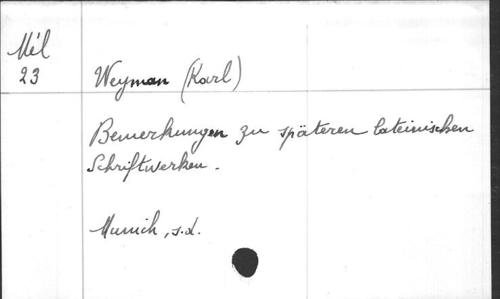 Mél
23
Weyman (Karl)
Bemerkungen zu späteren lateinischen
Schriftwerken.
Munich, s.d.